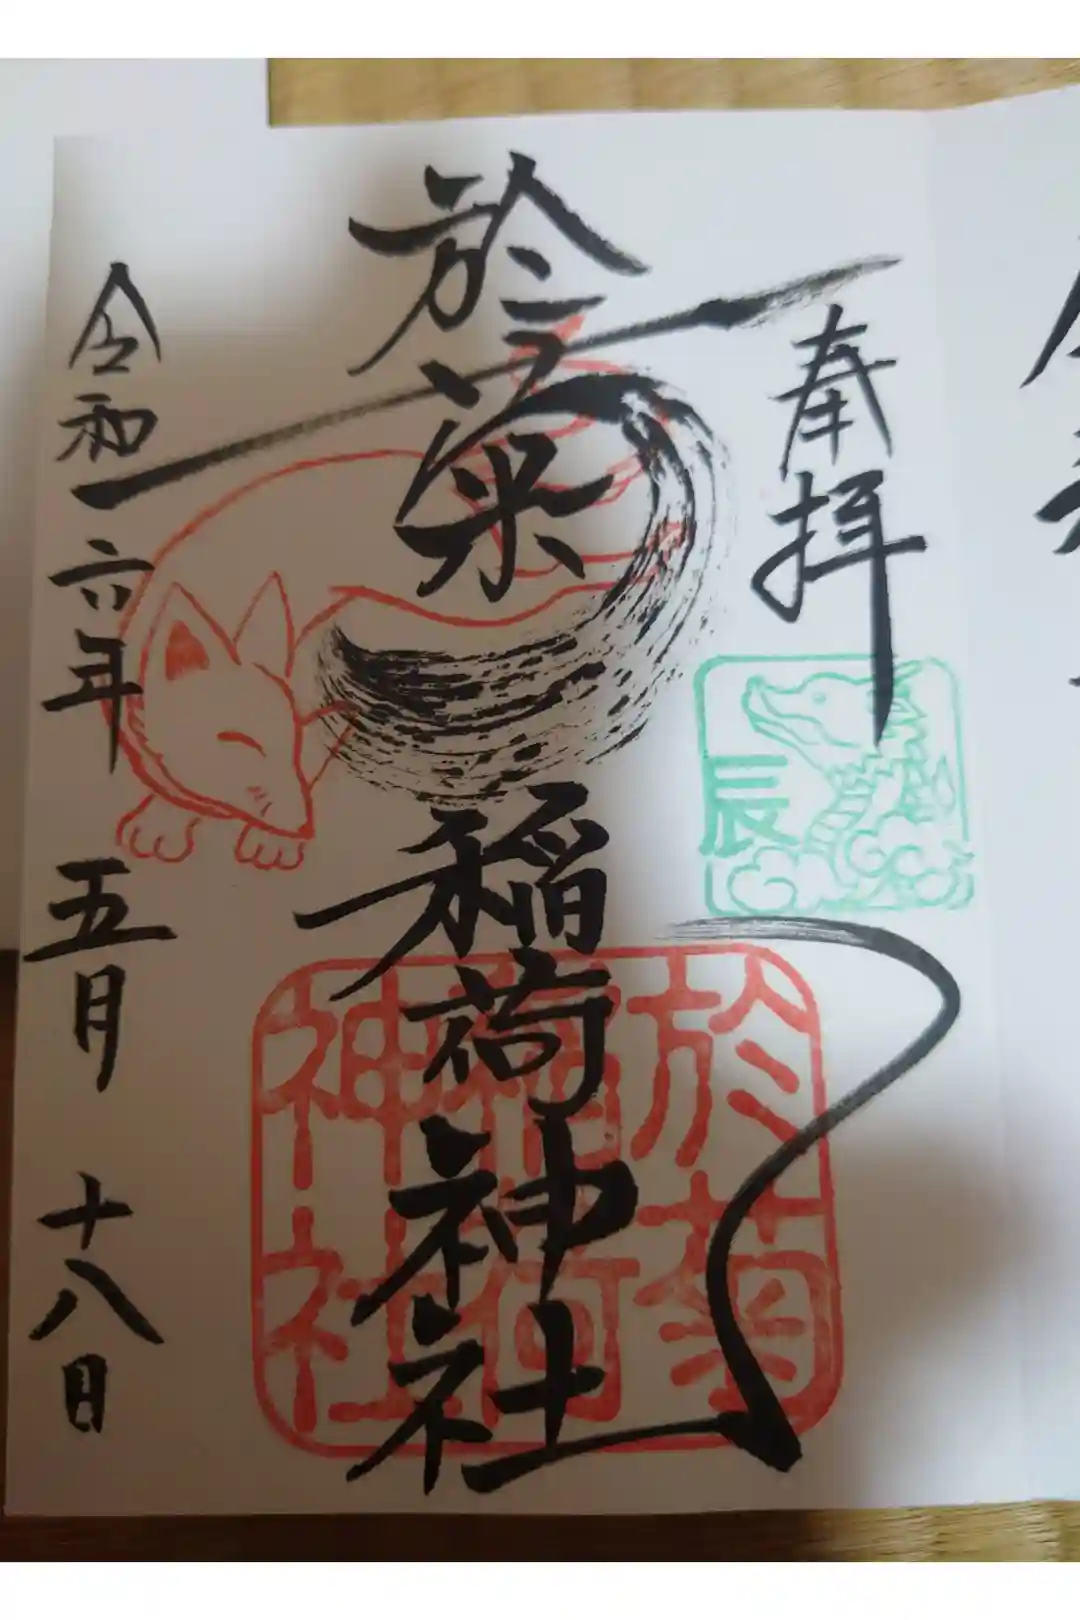 奉拝
辰
於菊稲荷神社
於菊
稲荷
神社
令和六年 五月 十八日